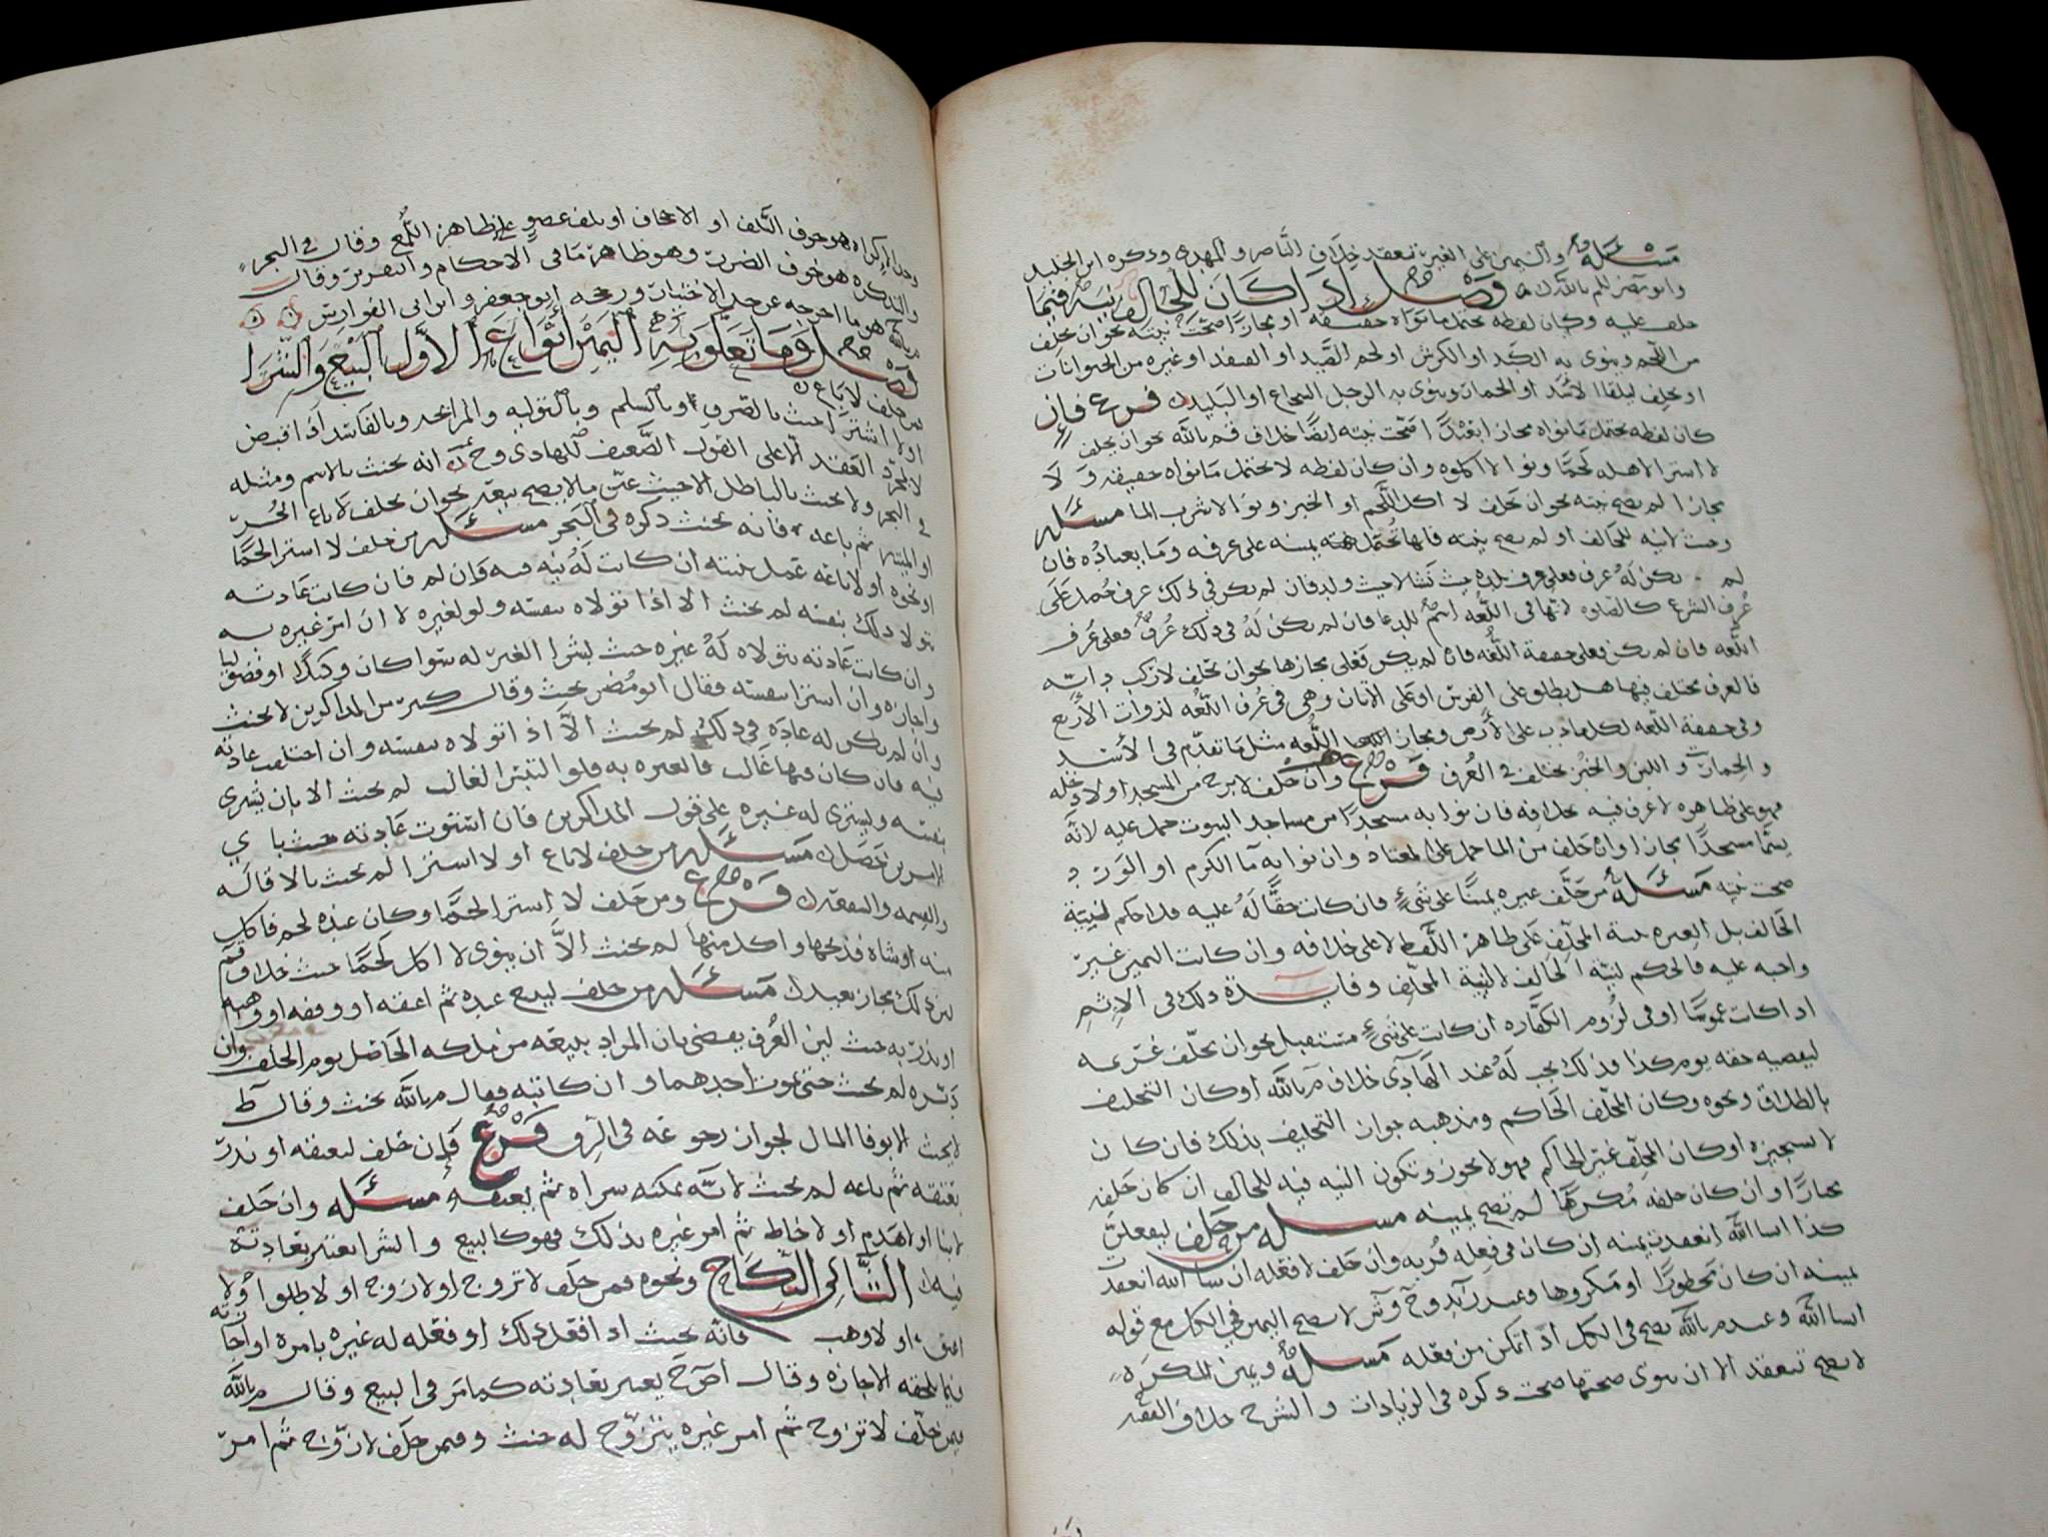 مسئله واليمين على الغير تنعقد خلاف الناصر والمهدي وذكره ابن الخليل
وابو مضر للم بالله فصل اذا كان للحالف نية فيما
حلف عليه وكان لفظه يحتمل ما نواه حقيقة او مجازا صحت نيته نحو ان يحلف
من اللحم وينوي به الكبد او الكرش او لحم الصيد او الفهد او غيره من الحيوانات
او يحلف ليلقا الاسد او الحمار وينوي به الرجل الشجاع او البليد فرع فان
كان لفظه يحتمل ما نواه مجازا بعيدا صحت نيته ايضا خلاف قم بالله نحو ان يحلف
لا اشترا لاهله لحما ونوا لا اكلوه وان كان لفظه لا يحتمل ما نواه حقيقة ولا
مجازا لم تصح نيته نحو ان يحلف لا اكل اللحم او الخبز ونوا لا شرب الما مسئله
وحيث لا نية للحالف او لم تصح نيته فانها تحمل يمينه على عرفه وما يعتاده فان
لم يكن له عرف فعلى عرف بلده ثم بلد فان لم يكن في ذلك عرف حمل على
عرف الشرع كالصلوه لانها في اللغه اسم للدعا فان لم يكن له في ذلك عرف فعلى عرف
اللغه فان لم يكن فعلى حقيقة اللغه فان لم يكن فعلى مجازها نحو ان يحلف لا ركب دابه
فالعرف مختلف فيها هل يطلق على الفرس او على الاتان وهي في عرف اللغه لذوات الاربع
وفي حقيقة اللغه لكل ما دب على الارض ومجاز اللغه مثل ما تقدم في الاسد
والحمار واللبن والخبز يختلف في العرف فرع وان حلف لا برح من المسجد او لا دخله
فهو على ظاهره لا عرف فيه بخلافه فان نوا به مسجدا من مساجد البيوت حمل عليه لانه
يسما مسجدا مجازا وان حلف من الما حمل على المعتاد وان نوا به ما الكرم او الورد
صحت نيته مسئله من حلف غيره يمينا على شيء فان كانت حقا له عليه فلا حكم لنية
الحالف بل العبره بنية المحلف على ظاهر اللفظ لا على خلافه وان كانت اليمين غير
واجبه عليه فالحكم لنية الحالف لا لنية المحلف وفايدة ذلك في الاثم
اذا كانت غموسا او في لزوم الكفاره ان كانت على شيء مستقبل نحو ان يحلف غريمه
ليقضيه حقه يوم كذا فذلك يجب له عند الهادي خلاف م بالله او كان التحليف
بالطلاق ونحوه وكان المحلف الحاكم ومذهبه جواز التحليف بذلك فان كان
لا يستجيزه او كان المحلف غير الحاكم فهو لا يجوز وتكون النيه فيه للحالف ان كان حلفه
مجازا وان كان حلفه مكرها لم تصح يمينه مسئله من حلف ليفعلن
كذا ان شا الله انعقدت يمينه ان كان في فعله قربه وان حلف لا فعله ان شا الله انعقدت
يمينه ان كان محظورا او مكروها وعند زيد وح وش لا تصح اليمين في الكل مع قوله
ان شا الله وعند م بالله تصح في الكل اذا تمكن من فعله مسئله ويمين المكره
لا تصح تنعقد الا ان ينوي صحتها صحت ذكره في الزيادات والشرح خلاف الفقه
وحد الاكراه هو خوف التلف او الاجحاف او تلف عضو على ظاهر اللمع وقال في البحر
والتذكره هو خوف الضرر وهو ظاهر ما في الاحكام والتقرير وقال
هو ما اخرجه عن حد الاختيار ورجحه ابو جعفر وابن ابي الفوارس
فصل وما تعلق به اليمين انواع الاول البيع والشرا
من حلف لا باع
او لا اشترا حنث بالصرف وبالسلم وبالتوليه والمرابحه وبالفاسد اذا قبض
لا بمجرد العقد الا على القول الضعيف للهادي وح انه يحنث بالاسم ومثله
في البحر ولا يحنث بالباطل الا حيث عين ما لا يصح بيعه نحو ان يحلف لا باع الحر
او الميته ثم باعه فانه يحنث ذكره في البحر مسئله من حلف لا اشترا لحما
او نحوه او لا باعه عمل بنيته ان كانت له نيه فيه وان لم فان كانت عادته
تولا ذلك بنفسه لم يحنث الا اذا تولاه بنفسه ولو لغيره لا ان امر غيره به
وان كانت عادته يتولاه له غيره حنث بشرا الغير له سوا كان وكيلا او فضوليا
واجازه وان اشترا بنفسه فقال ابو مضر يحنث وقال كثير من المذاكرين لا يحنث
وان لم يكن له عادة في ذلك لم يحنث الا اذا تولاه بنفسه وان اختلفت عادته
فيه فان كان فيها غالب فالعبره به فلو التبس الغالب لم يحنث الا بان يشتري
بنفسه ويشتري له غيره على قول المذاكرين فان استوت عادته حنث باي
الامرين حصل مسئله من حلف لا باع او لا اشترا لم يحنث بالاقاله
والقسمه والشفعة فرع ومن حلف لا اشترا لحما وكان عنده لحم فاكل
منه او شاه فذبحها واكل منها لم يحنث الا ان ينوي لا اكل لحما حنث خلاف قم
لان ذلك مجاز بعيد مسئله من حلف ليبيع عبده ثم اعتقه او وقفه او وهبه
او نذر به حنث لان العرف يقضي بان المراد ببيعه من ملكه الحاصل يوم الحلف وان
دبره لم يحنث حتى يموت احدهما وان كاتبه فقال م بالله يحنث وقال ط
لا يحنث الا بوفا المال لجواز رجوعه في الرق فرع فان حلف ليعتقه او نذر
بعتقه ثم باعه لم يحنث لانه يمكنه شراه ثم يعتقه مسئله وان حلف
لا بنا او لا هدم او لا خاط ثم امر غيره بذلك فهو كالبيع والشرا يعتبر بعادته
فيه الثاني النكاح ونحوه فمن حلف لا تزوج او لا زوج او لا طلق او لا
اعتق او لا وهب فانه يحنث اذا فعل ذلك او فعله له غيره بامره او اجازته
فيما تلحقه الاجازه وقال اصح يعتبر بعادته كما مر في البيع وقال م بالله
فيمن حلف لا تزوج ثم امر غيره يتزوج له حنث وفيمن حلف لا زوج ثم امر